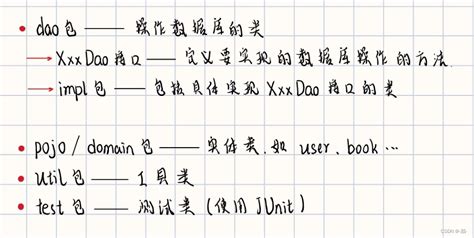 • dao包 —— 操作数据库的类
→ XxxDao接口 —— 定义要实现的数据库操作的方法.
→ impl包 —— 包括具体实现XxxDao接口的类
• pojo / domain包 —— 实体类.如 user、book…
• util包 —— 工具类
• test包 —— 测试类 (使用JUnit)